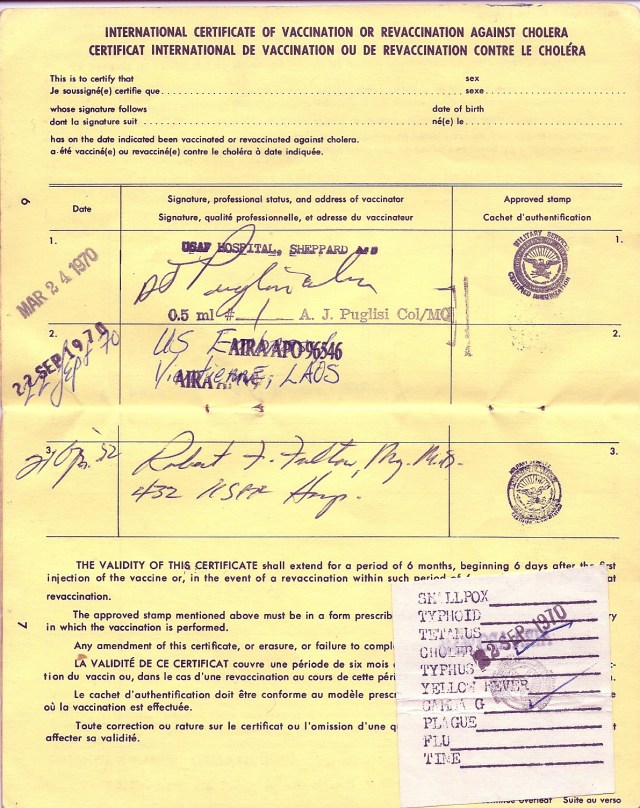 INTERNATIONAL CERTIFICATE OF VACCINATION OR REVACCINATION AGAINST CHOLERA
CERTIFICAT INTERNATIONAL DE VACCINATION OU DE REVACCINATION CONTRE LE CHOLÉRA
This is to certify that sex
Je soussigné(e) certifie que sexe
whose signature follows date of birth
dont la signature suit né(e) le
has on the date indicated been vaccinated or revaccinated against cholera.
a été vacciné(e) ou revacciné(e) contre le choléra à date indiquée.
6
Date
Signature, professional status, and address of vaccinator
Signature, qualité professionnelle, et adresse du vaccinateur
Approved stamp
Cachet d'authentification
1. 1.
MAR 24 1970
USAF HOSPITAL, SHEPPARD
MILITARY SERVICE
0.5 ml # 1 A. J. Puglisi Col/MC
2. 2.
22 SEP 1970
22 Sept 70
US
AIRA APO 96546
AIRA
LAOS
3. 3.
Robert F. Fulton,
432 USAF Hosp.
MILITARY SERVICE
THE VALIDITY OF THIS CERTIFICATE shall extend for a period of 6 months, beginning 6 days after the first
injection of the vaccine or, in the event of a revaccination within such period of
revaccination.
The approved stamp mentioned above must be in a form
in which the vaccination is performed.
Any amendment of this certificate, or erasure, or failure to
LA VALIDITÉ DE CE CERTIFICAT couvre une période de six mois
tion du vaccin ou, dans le cas d'une revaccination au cours de cette
Le cachet d'authentification doit être conforme au modèle
où la vaccination est effectuée.
Toute correction ou rature sur le certificat ou l'omission d'une
affecter sa validité.
7
SMALLPOX
TYPHOID
TETANUS
CHOLERA
22 SEP 1970
TYPHUS
YELLOW FEVER
GAMMA G
PLAGUE
FLU
TINE
Suite au verso